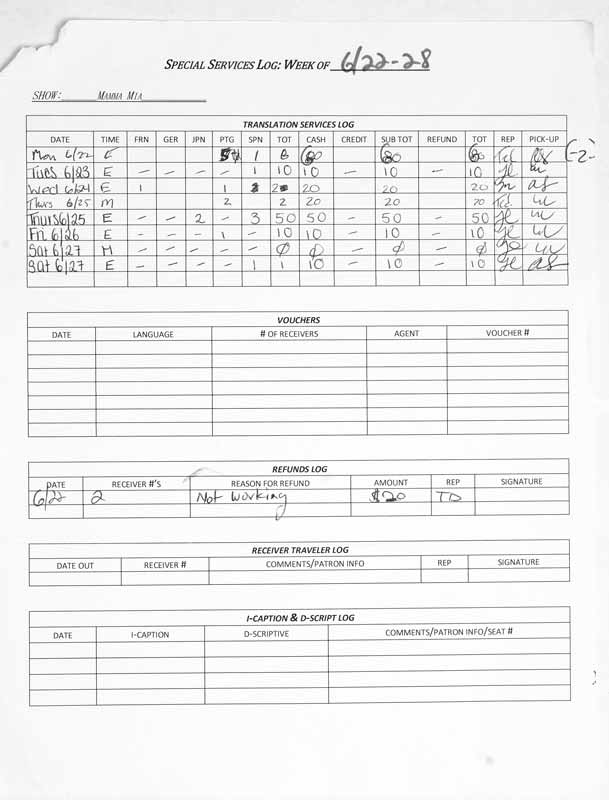 SPECIAL SERVICES LOG: WEEK OF 6/22-28
SHOW: MAMMA MIA
TRANSLATION SERVICES LOG
DATE TIME FRN GER JPN PTG SPN TOT CASH CREDIT SUB TOT REFUND TOT REP PICK-UP
Mon 6/22 E 1 6 60 80 60 TD as (-2-
Tues 6/23 E - - - - 1 10 10 - 10 - 10 w
Wed 6/24 E 1 1 20 20 20 as
Thurs 6/25 M 2 2 20 20 20 TD w
Thurs 6/25 E - - 2 - 3 50 50 - 50 - 50 w
Fri 6/26 E - - - 1 - 10 10 - 10 - 10 w
Sat 6/27 M - - - - - ø ø - ø - ø w
Sat 6/27 E - - - - 1 1 10 - 10 - 10 as
VOUCHERS
DATE LANGUAGE # OF RECEIVERS AGENT VOUCHER #
REFUNDS LOG
DATE RECEIVER #'S REASON FOR REFUND AMOUNT REP SIGNATURE
6/22 2 Not working $20 TD
RECEIVER TRAVELER LOG
DATE OUT RECEIVER # COMMENTS/PATRON INFO REP SIGNATURE
I-CAPTION & D-SCRIPT LOG
DATE I-CAPTION D-SCRIPTIVE COMMENTS/PATRON INFO/SEAT #